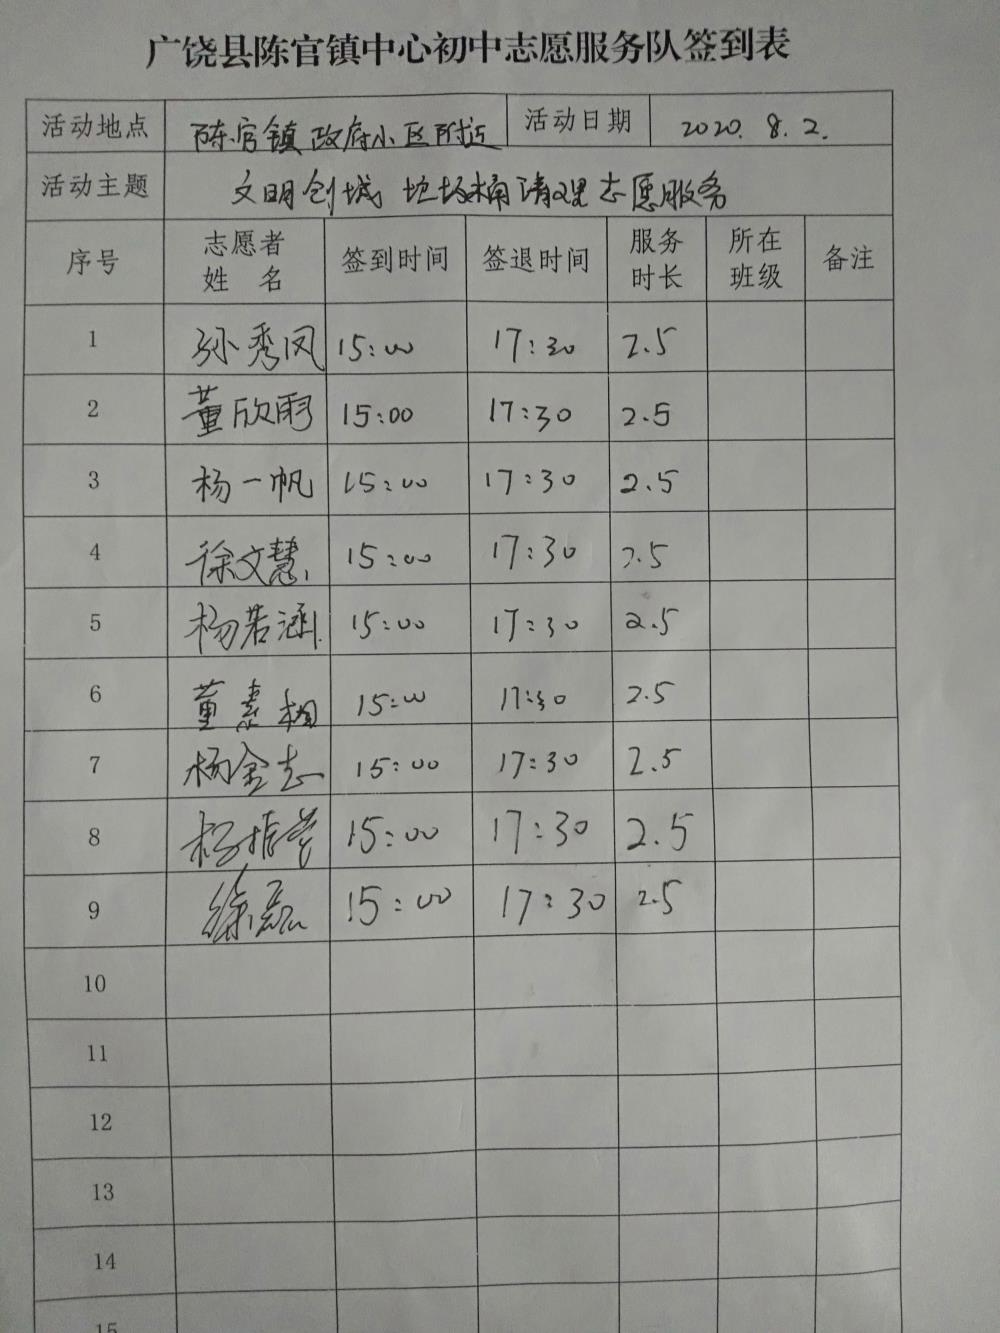 广饶县陈官镇中心初中志愿服务队签到表
活动地点 陈官镇政府小区附近 活动日期 2020.8.2.
活动主题 文明创城 垃圾桶清理志愿服务
序号 志愿者姓名 签到时间 签退时间 服务时长 所在班级 备注
1 孙秀凤 15:00 17:30 2.5
2 董欣雨 15:00 17:30 2.5
3 杨一帆 15:00 17:30 2.5
4 徐文慧 15:00 17:30 2.5
5 杨若涵 15:00 17:30 2.5
6 董素相 15:00 17:30 2.5
7 杨金志 15:00 17:30 2.5
8 杨 15:00 17:30 2.5
9 徐磊 15:00 17:30 2.5
10
11
12
13
14
15